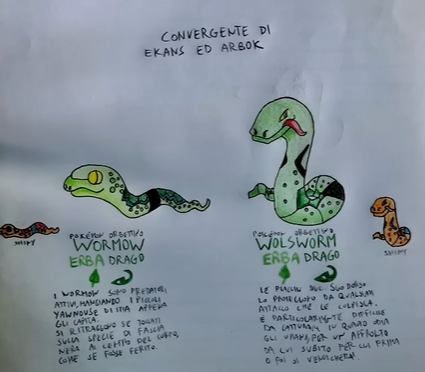 CONVERGENTE DI
EKANS ED ARBOK
SHINY
POKÉMON ORBETTINO
WORMOW
ERBA DRAGO
I WORMOW SONO PREDATORI
ATTIVI, MANGIANDO I PICCOLI
YAWNOUSE DI CUI APPENA
GLI CAPITA.
SI RITRAGGONO SE TOCCATI
SULLA SPECIE DI FASCIA
NERA AL CENTRO DEL CORPO,
COME SE FOSSE FERITO.
POKÉMON ORBETTINO
WOLSWORM
ERBA DRAGO
LE PLACCHE DEL SUO DORSO
LO PROTEGGONO DA QUALSIASI
ATTACCO CHE LE COLPISCA.
È PARTICOLARMENTE DIFFICILE
DA CATTURARE IN QUANTO
GLI UMANI, PER UN AFFRONTO
DA LUI SUBITO PER LUI PRIMA
O POI SI VENDICHERÀ!
SHINY